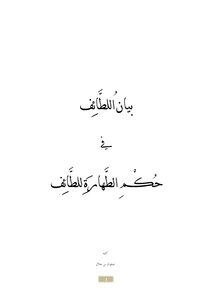 بيانُ اللطَّائِفِ
في
حُكْمِ الطَّهَارَةِ للطَّائِفِ